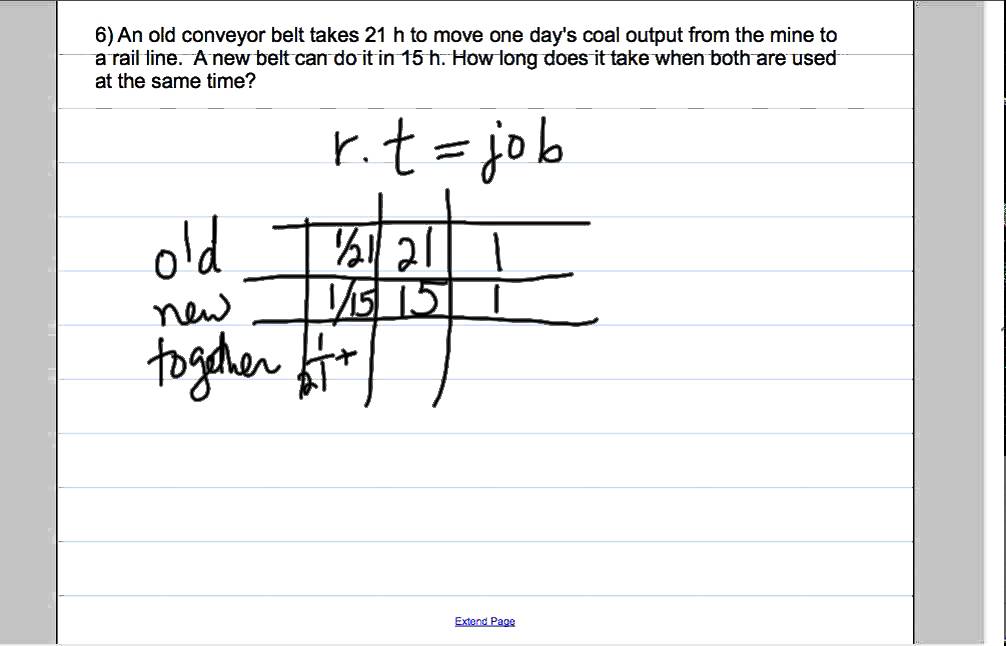 6) An old conveyor belt takes 21 h to move one day's coal output from the mine to
a rail line. A new belt can do it in 15 h. How long does it take when both are used
at the same time?
r. t = job
old 1/21 21 1
new 1/15 15 1
together 1/21 +
Extend Page